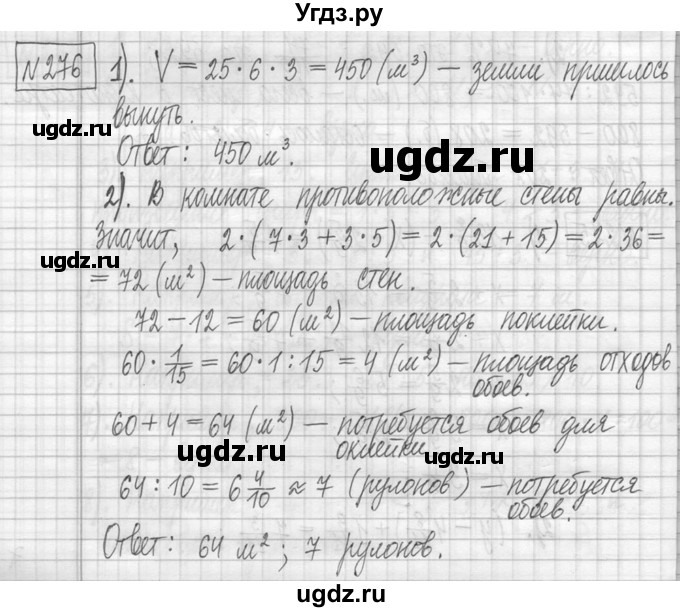 Угдз.ру
№276 1). V = 25 · 6 · 3 = 450 (м³) — земли пришлось
вынуть.
ugdz.ru
Ответ: 450 м³.
ugdz.ru
2). В комнате противоположные стены равны.
ugdz.ru
Значит, 2 · (7 · 3 + 3 · 5) = 2 · (21 + 15) = 2 · 36 =
ugdz.ru
= 72 (м²) — площадь стен.
72 − 12 = 60 (м²) — площадь поклейки.
60 · 1/15 = 60 · 1 : 15 = 4 (м²) — площадь отходов
обоев.
60 + 4 = 64 (м²) — потребуется обоев для
оклейки.
ugdz.ru
ugdz.ru
64 : 10 = 6 4/10 ≈ 7 (рулонов) — потребуется
обоев.
Ответ: 64 м²; 7 рулонов.
ugdz.ru
Угдз.ру